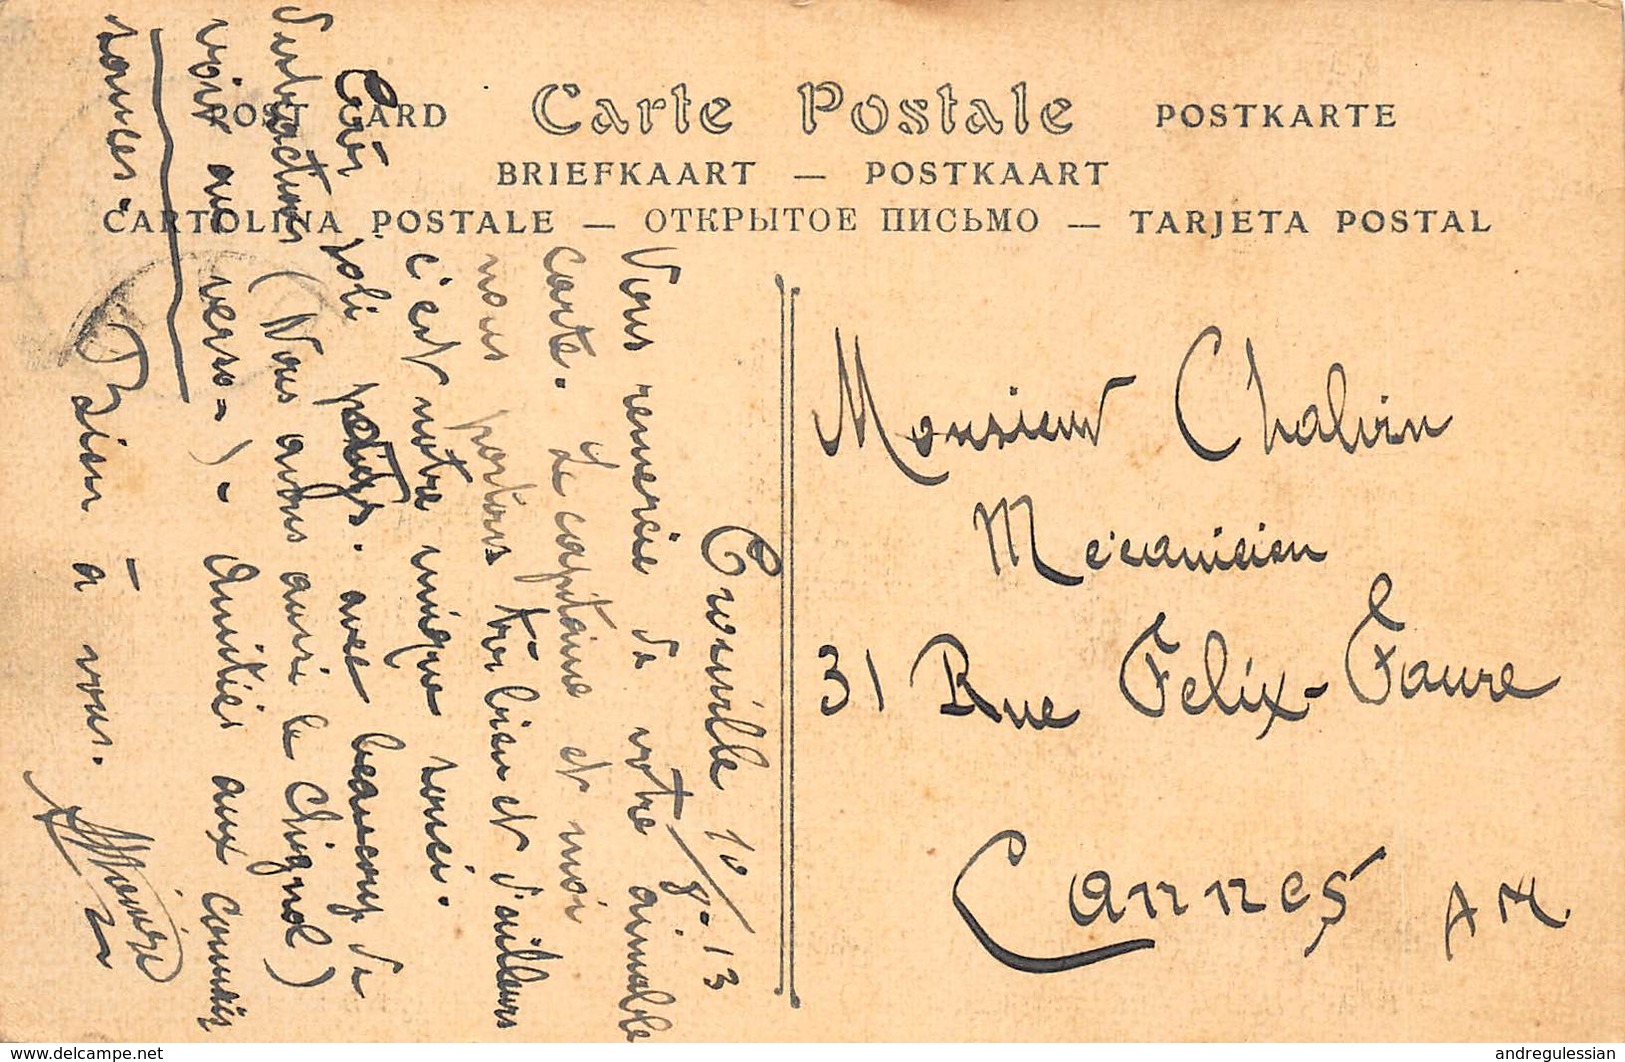 POST CARD Carte Postale POSTKARTE
BRIEFKAART — POSTKAART
CARTOLINA POSTALE — ОТКРЫТОЕ ПИСЬМО — TARJETA POSTAL
10/8-13
Vous remercie de votre aimable
carte. Le capitaine et moi
nous portons très bien et d'ailleurs
c'est notre unique souci.
joli pays. avec beaucoup de
(Nous avons aussi le Chignol)
voir au verso-)- Amitiés aux connais
sances.
Bien à vous.
Monsieur Chalvin
Mécanicien
31 Rue Felix-Faure
Cannes AM
www.delcampe.net
andregulessian